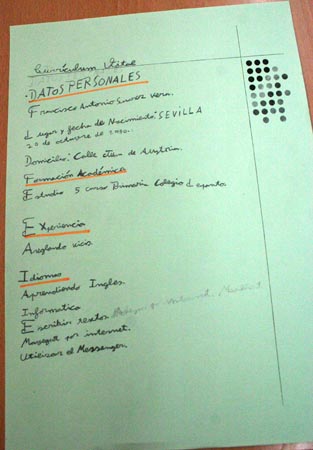 Curriculum Vitae
DATOS PERSONALES
Francisco Antonio Suarez Vera.
Lugar y fecha de Nacimiento: SEVILLA
20 de octubre de
Domicilio: Calle de Austria.
Formación Académica
Estudio 5 curso Primaria Colegio
Experiencia
Areglando vicis.
Idiomas
Aprendiendo Ingles.
Informatica
Escribir textos por internet.
por internet.
Utilizar el Messenger.